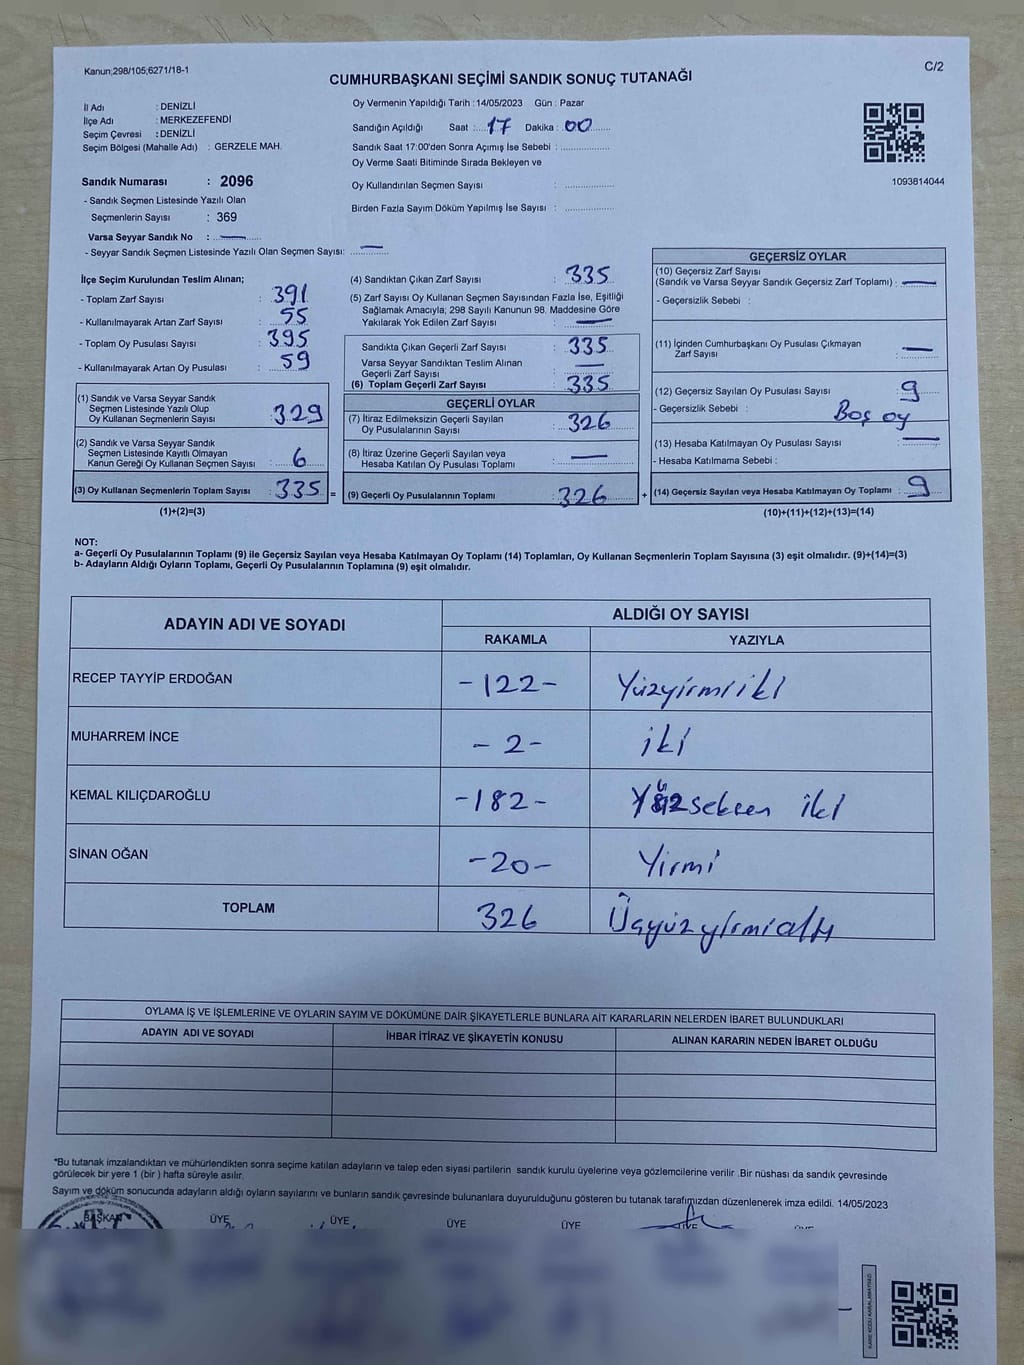 Kanun;298/105;6271/18-1
C/2
CUMHURBAŞKANI SEÇİMİ SANDIK SONUÇ TUTANAĞI
İl Adı : DENİZLİ
İlçe Adı : MERKEZEFENDİ
Seçim Çevresi : DENİZLİ
Seçim Bölgesi (Mahalle Adı) : GERZELE MAH.
Sandık Numarası : 2096
- Sandık Seçmen Listesinde Yazılı Olan
Seçmenlerin Sayısı : 369
Varsa Seyyar Sandık No : —
- Seyyar Sandık Seçmen Listesinde Yazılı Olan Seçmen Sayısı: —
Oy Vermenin Yapıldığı Tarih : 14/05/2023 Gün : Pazar
Sandığın Açıldığı Saat : 17 Dakika : 00
Sandık Saat 17:00'den Sonra Açılmış İse Sebebi :
Oy Verme Saati Bitiminde Sırada Bekleyen ve
Oy Kullandırılan Seçmen Sayısı :
Birden Fazla Sayım Döküm Yapılmış İse Sayısı :
1093814044
İlçe Seçim Kurulundan Teslim Alınan;
- Toplam Zarf Sayısı : 391
- Kullanılmayarak Artan Zarf Sayısı : 55
- Toplam Oy Pusulası Sayısı : 395
- Kullanılmayarak Artan Oy Pusulası : 59
(1) Sandık ve Varsa Seyyar Sandık
Seçmen Listesinde Yazılı Olup
Oy Kullanan Seçmenlerin Sayısı : 329
(2) Sandık ve Varsa Seyyar Sandık
Seçmen Listesinde Kayıtlı Olmayan
Kanun Gereği Oy Kullanan Seçmen Sayısı : 6
(3) Oy Kullanan Seçmenlerin Toplam Sayısı : 335 =
(1)+(2)=(3)
(4) Sandıktan Çıkan Zarf Sayısı : 335
(5) Zarf Sayısı Oy Kullanan Seçmen Sayısından Fazla İse, Eşitliği
Sağlamak Amacıyla; 298 Sayılı Kanunun 98. Maddesine Göre
Yakılarak Yok Edilen Zarf Sayısı : —
Sandıkta Çıkan Geçerli Zarf Sayısı : 335
Varsa Seyyar Sandıktan Teslim Alınan
Geçerli Zarf Sayısı : —
(6) Toplam Geçerli Zarf Sayısı : 335
GEÇERLİ OYLAR
(7) İtiraz Edilmeksizin Geçerli Sayılan
Oy Pusulalarının Sayısı : 326
(8) İtiraz Üzerine Geçerli Sayılan veya
Hesaba Katılan Oy Pusulası Toplamı : —
(9) Geçerli Oy Pusulalarının Toplamı : 326 +
GEÇERSİZ OYLAR
(10) Geçersiz Zarf Sayısı
(Sandık ve Varsa Seyyar Sandık Geçersiz Zarf Toplamı) : —
- Geçersizlik Sebebi :
(11) İçinden Cumhurbaşkanı Oy Pusulası Çıkmayan
Zarf Sayısı : —
(12) Geçersiz Sayılan Oy Pusulası Sayısı : 9
- Geçersizlik Sebebi : Boş oy
(13) Hesaba Katılmayan Oy Pusulası Sayısı : —
- Hesaba Katılmama Sebebi :
(14) Geçersiz Sayılan veya Hesaba Katılmayan Oy Toplamı : 9
(10)+(11)+(12)+(13)=(14)
NOT:
a- Geçerli Oy Pusulalarının Toplamı (9) ile Geçersiz Sayılan veya Hesaba Katılmayan Oy Toplamı (14) Toplamları, Oy Kullanan Seçmenlerin Toplam Sayısına (3) eşit olmalıdır. (9)+(14)=(3)
b- Adayların Aldığı Oyların Toplamı, Geçerli Oy Pusulalarının Toplamına (9) eşit olmalıdır.
ADAYIN ADI VE SOYADI ALDIĞI OY SAYISI
RAKAMLA YAZIYLA
RECEP TAYYİP ERDOĞAN -122- Yüzyirmiiki
MUHARREM İNCE -2- iki
KEMAL KILIÇDAROĞLU -182- Yüzseksen iki
SİNAN OĞAN -20- Yirmi
TOPLAM 326 Üçyüzyirmialtı
OYLAMA İŞ VE İŞLEMLERİNE VE OYLARIN SAYIM VE DÖKÜMÜNE DAİR ŞİKAYETLERLE BUNLARA AİT KARARLARIN NELERDEN İBARET BULUNDUKLARI
ADAYIN ADI VE SOYADI İHBAR İTİRAZ VE ŞİKAYETİN KONUSU ALINAN KARARIN NEDEN İBARET OLDUĞU
*Bu tutanak imzalandıktan ve mühürlendikten sonra seçime katılan adayların ve talep eden siyasi partilerin sandık kurulu üyelerine veya gözlemcilerine verilir .Bir nüshası da sandık çevresinde
görülecek bir yere 1 (bir ) hafta süreyle asılır.
Sayım ve döküm sonucunda adayların aldığı oyların sayılarını ve bunların sandık çevresinde bulunanlara duyurulduğunu gösteren bu tutanak tarafımızdan düzenlenerek imza edildi. 14/05/2023
BAŞKAN ÜYE ÜYE ÜYE ÜYE ÜYE
KARE KODU KARALAMAYINIZ!